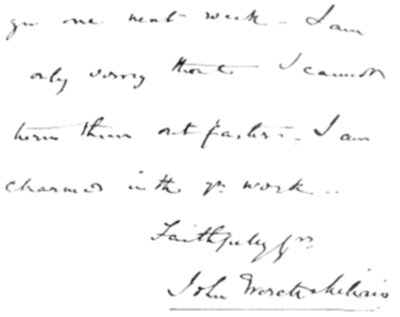 you one next week - I am
only sorry that I cannot
turn them out faster. I am
charmed with yr work ..
Faithfully yrs
John Everett Millais